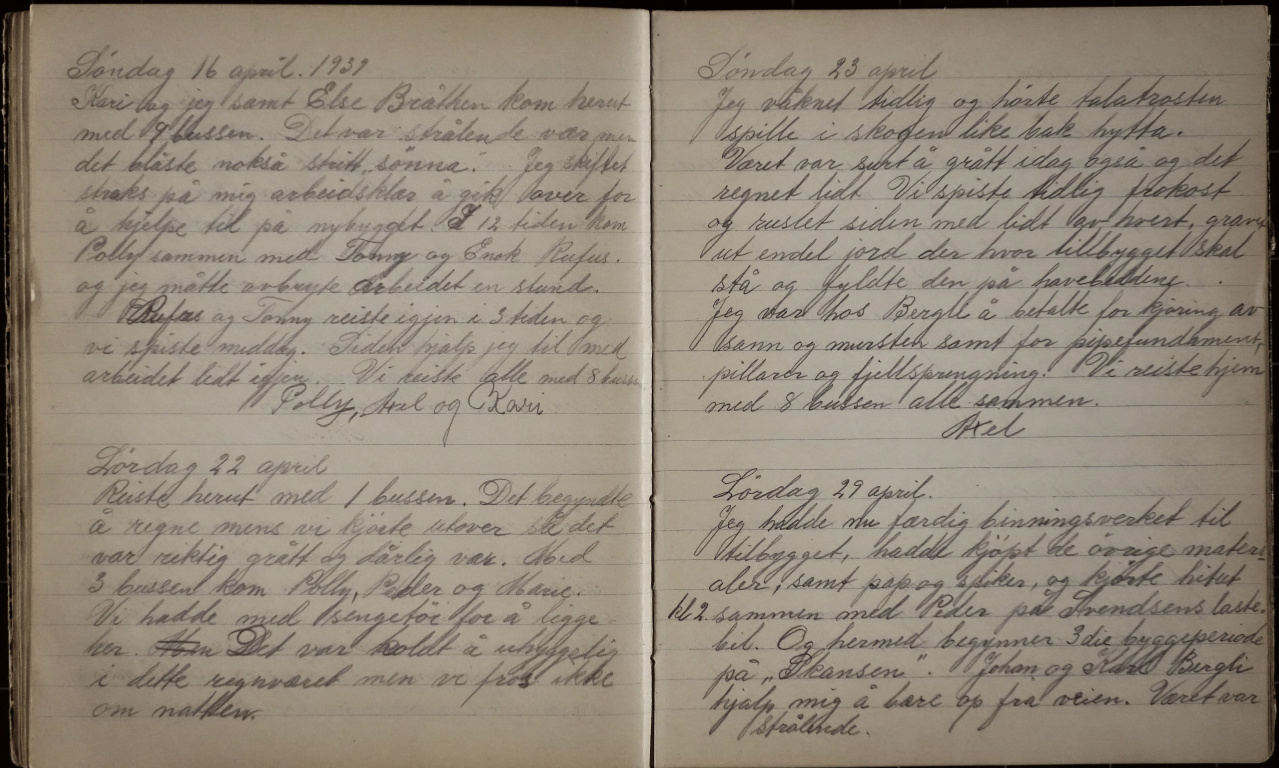 Søndag 16 april. 1939
Kari og jeg samt Else Bråthen kom herut
med 9 bussen. Det var strålende vær men
det blåste nokså stritt „sønna". Jeg skiftet
straks på mig arbeidsklær å gik over for
å hjelpe til på nybygget. I 12 tiden kom
Polly sammen med Tonny og Enok Rufus.
og jeg måtte avbryte arbeidet en stund.
Rufus og Tonny reiste igjen i 3 tiden og
vi spiste middag. Siden hjalp jeg til med
arbeidet lidt igjen. Vi reiste alle med 8 bussen
Polly, Axel og Kari
Lørdag 22 april
Reiste herut med 1 bussen. Det begyndte
å regne mens vi kjørte utover så det
var riktig grått og dårlig vær. Med
3 bussen kom Polly, Peder og Marie.
Vi hadde med sengetøi for å ligge
her. Men Det var koldt å uhyggelig
i dette regnværet men vi frøs ikke
om natten.
Søndag 23 april
Jeg våknet tidlig og hørte talatrosten
spille i skogen like bak hytta.
Været var surt å grått idag også og det
regnet lidt. Vi spiste tidlig frokost
og ruslet siden med lidt av hvert, gravet
ut endel jord der hvor tillbygget skal
stå og fyldte den på havebeddene.
Jeg var hos Bergli å betalte for kjøring av
sann og mursten samt for pipefundament,
pillarer og fjellsprengning. Vi reiste hjem
med 8 bussen alle sammen.
Axel
Lørdag 29 april.
Jeg hadde nu færdig binningsverket til
tilbygget, hadde kjøpt de øvrige materi
aler, samt pap og spiker, og kjørte hitut
kl 2. sammen med Peder på Svendsens laste-
bil. Og hermed begynner 3die byggeperiode
på „Skansen". Johan og Karl Bergli
hjalp mig å bære op fra veien. Været var
strålende.